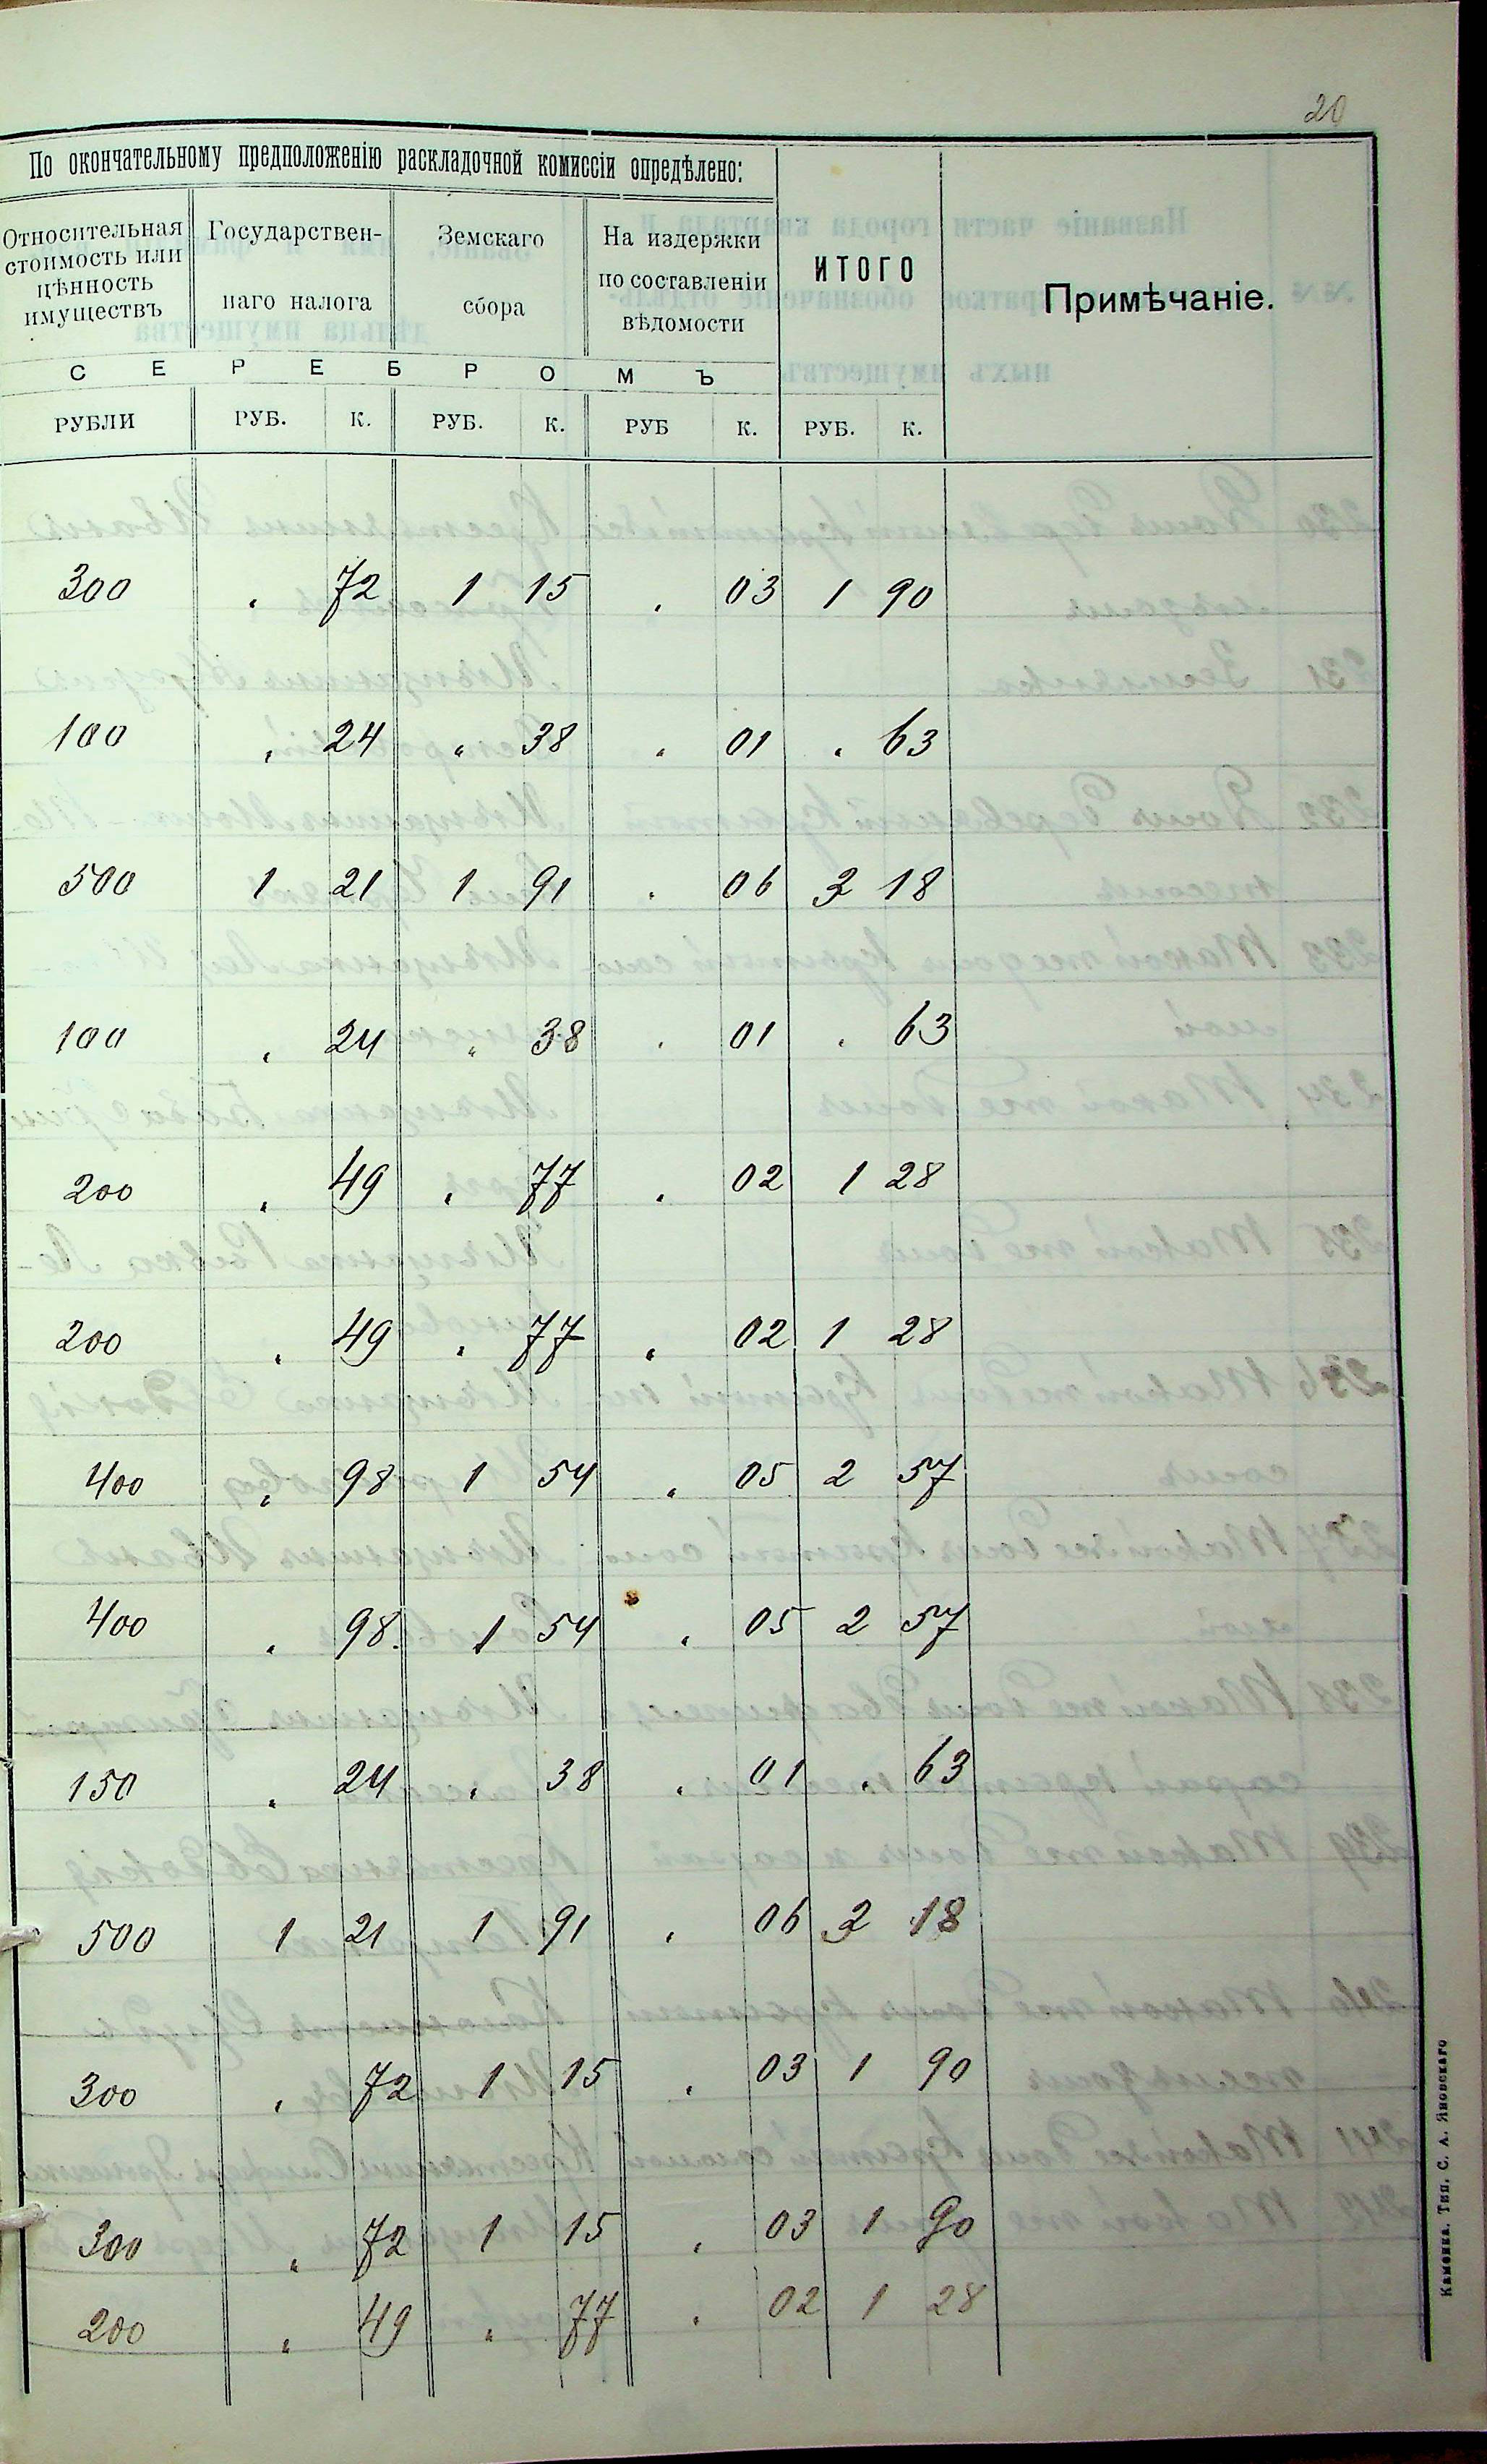 20
По окончательному предположенію раскладочной комиссіи опредѣлено:
Относительная стоимость или цѣнность имуществъ
Государствен-наго налога
Земскаго сбора
На издержки по составленіи вѣдомости
ИТОГО
Примѣчаніе.
С Е Р Е Б Р О М Ъ
РУБЛИ РУБ. К. РУБ. К. РУБ К. РУБ. К.
300 " 72 1 15 " 03 1 90
100 " 24 " 38 " 01 " 63
500 1 21 1 91 " 06 3 18
100 " 24 " 38 " 01 " 63
200 " 49 " 77 " 02 1 28
200 " 49 " 77 " 02 1 28
400 " 98 1 54 " 05 2 57
400 " 98 1 54 " 05 2 57
150 " 24 " 38 " 01 " 63
500 1 21 1 91 " 06 3 18
300 " 72 1 15 " 03 1 90
300 " 72 1 15 " 03 1 90
200 " 49 " 77 " 02 1 28
Каменка. Тип. С. А. Яновскаго